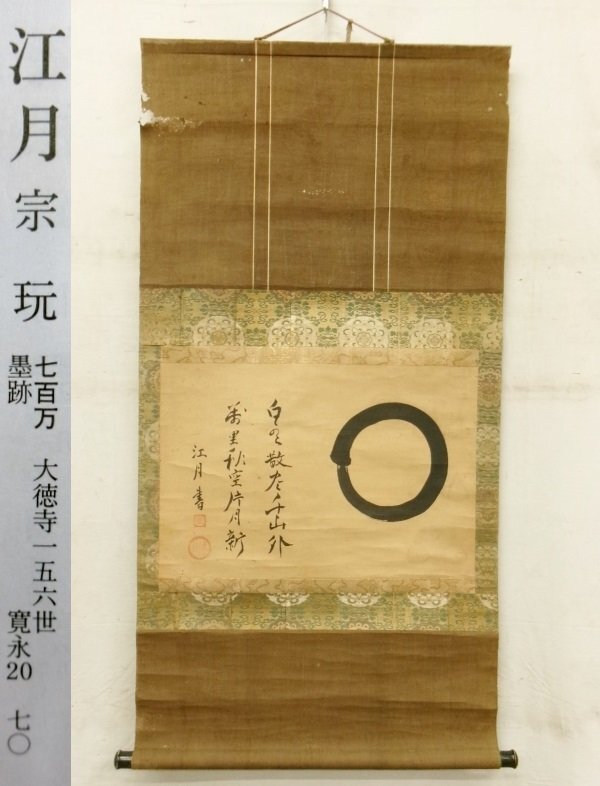 江月宗玩
七百万 大徳寺一五六世
墨跡 寛永20 七〇
白雲散在千山外
萬里秋空片月新
江月書